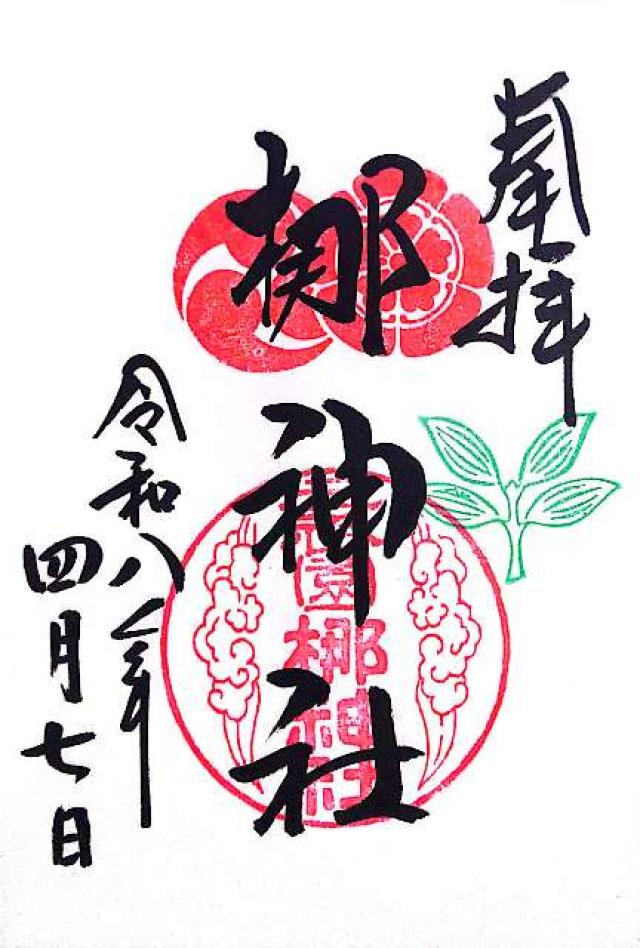 奉拝
梛神社
元祇園梛神社
令和八年
四月七日